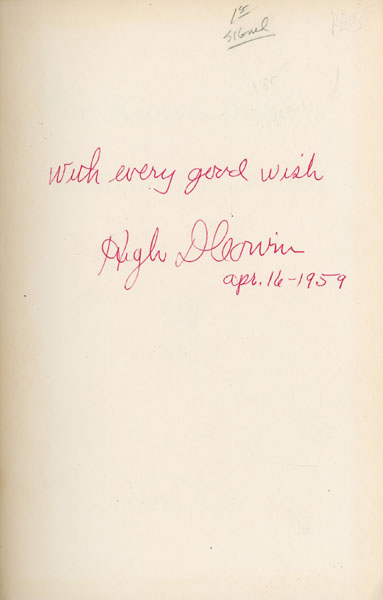 1st
signed
With every good wish
Hugh D Corwin
Apr. 16-1959